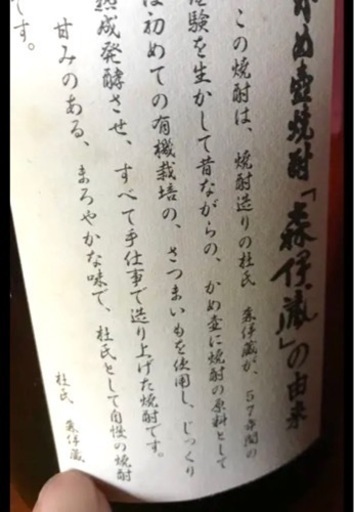 かめ壺焼酎「森伊蔵」の由来
この焼酎は、焼酎造りの杜氏 森伊蔵が、57年間の
経験を生かして昔ながらの、かめ壺に焼酎の原料として
は初めての有機栽培の、さつまいもを使用し、じっくり
熟成発酵させ、すべて手仕事で造り上げた焼酎です。
甘みのある、まろやかな味で、杜氏として自慢の焼酎
です。
杜氏 森伊蔵